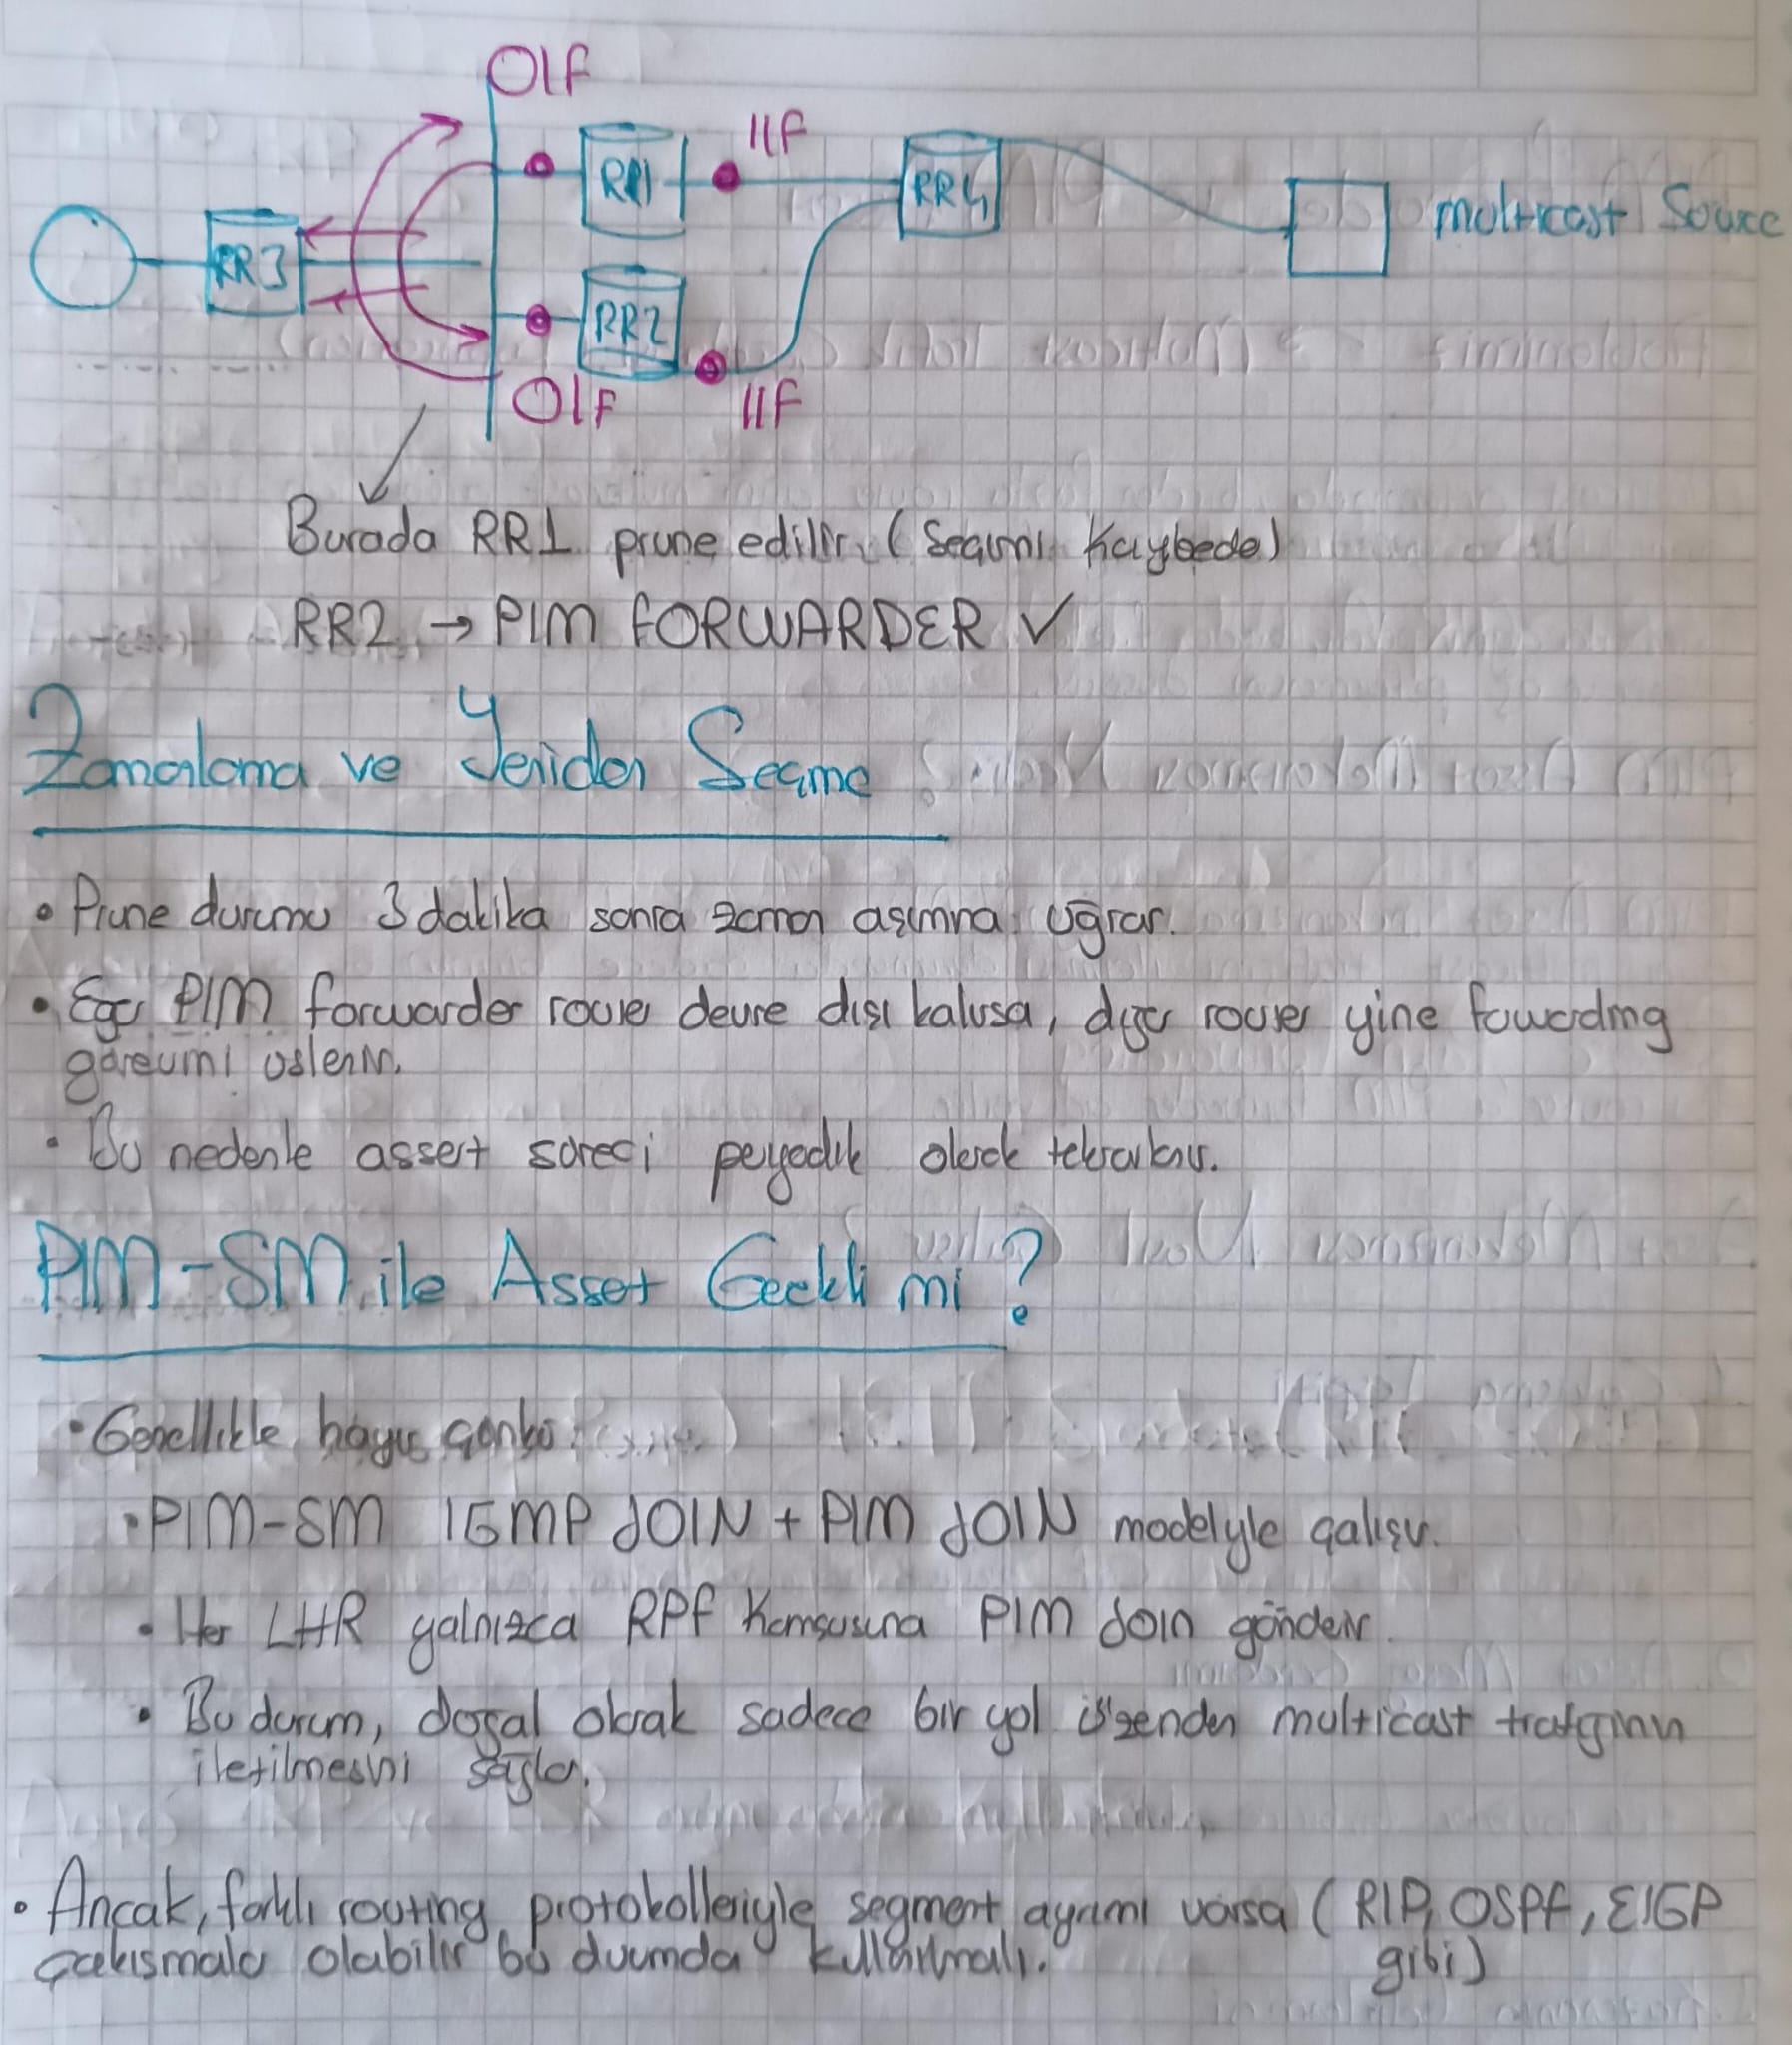 OIF
IIF
RR1
RR4
multicast Source
RR3
RR2
OIF
IIF
Burada RR1 prune edilir. (Seçimi kaybeder)
RR2 → PIM FORWARDER ✓
Zamanlama ve Yeniden Seçme
• Prune durumu 3 dakika sonra zaman aşımına uğrar.
• Eğer PIM forwarder router devre dışı kalırsa, diğer router yine forwarding
görevini üstlenir.
• Bu nedenle assert süreci peryodik olarak tekrarlanır.
PIM-SM ile Assert Gerekli mi?
• Genellikle hayır çünkü:
• PIM-SM IGMP JOIN + PIM JOIN modelyle çalışır.
• Her LHR yalnızca RPF Komşusuna PIM Join gönderir.
• Bu durum, doğal olarak sadece bir yol üzerinden multicast trafiğinin
iletilmesini sağlar.
• Ancak, farklı routing protokolleriyle segment ayrımı varsa (RIP, OSPF, EIGP
gibi)
çakışmalar olabilir bu durumda kullanılmalı.